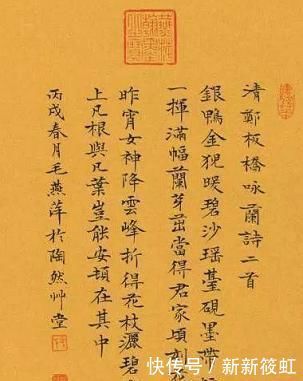 清鄭板橋咏蘭詩二首
銀鴨金猊暖碧沙瑶臺硯墨帶
一揮滿幅蘭芽茁當得君家頃刻花
昨宵女神降雲峰折得花枝灑碧
上凡根與凡葉豈能安頓在其中
丙戌春月毛燕萍於陶然艸堂
快传号/新新筱虹